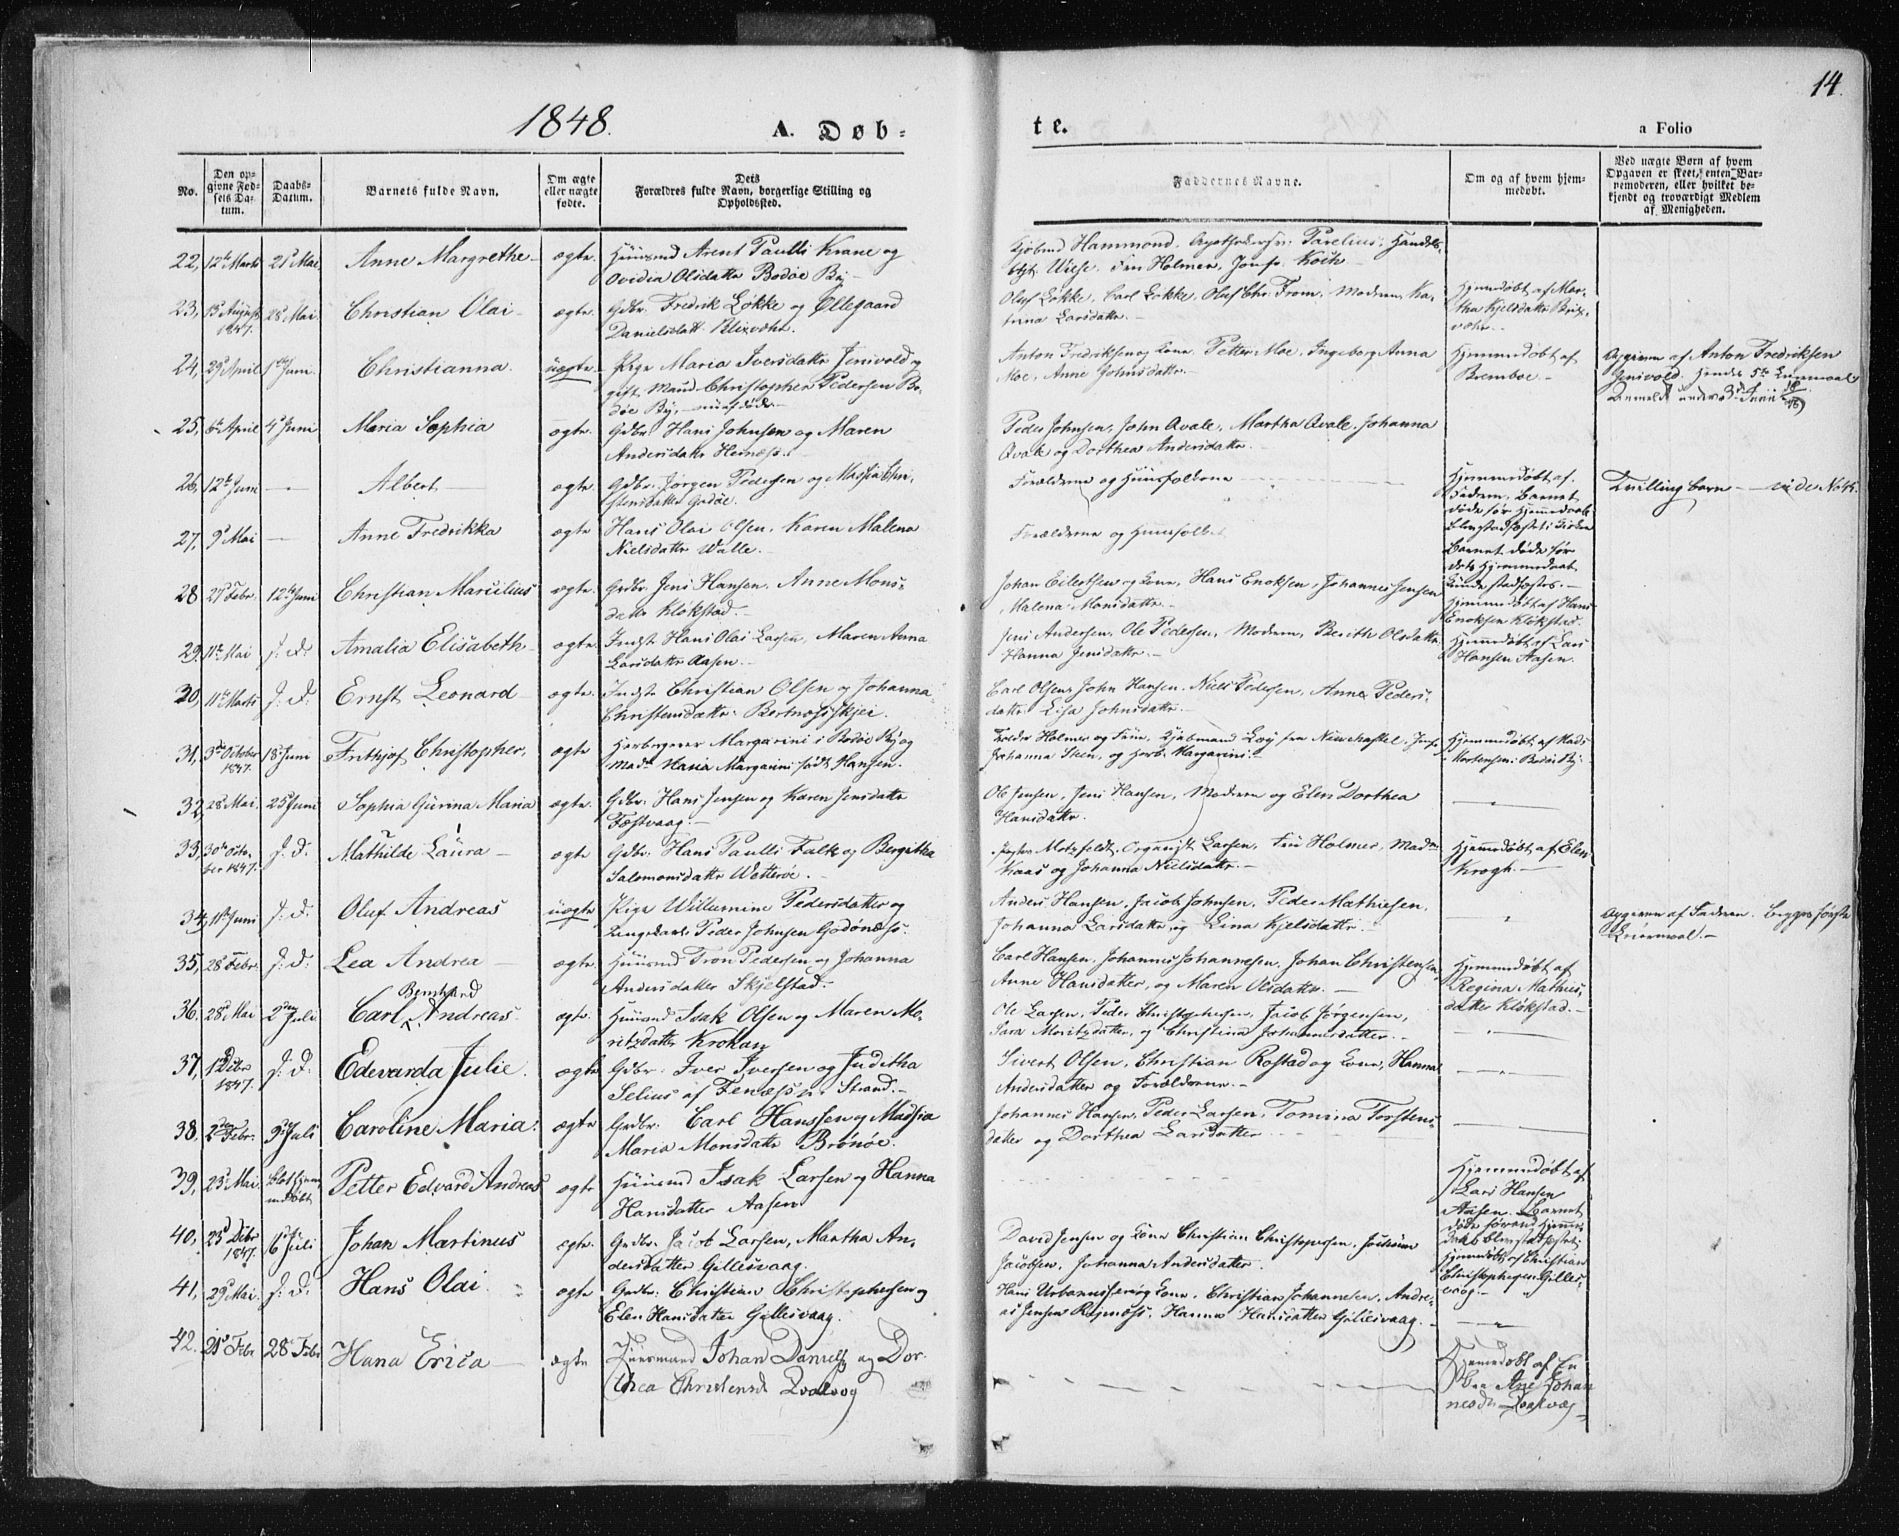 14.
1848.
A. Døb-
te.
a Folio
No.
Den op-
givne Fød-
sels Da-
tum.
Daabs-
Datum.
Barnets fulde Navn.
Om ægte
eller uægte
fødte.
Dets
Forældres fulde Navn, borgerlige Stilling og
Opholdssted.
Faddernes Navne.
Om og af hvem hjem-
medøbt.
Ved uægte Børn af hvem
Opgaven er skeet, enten Bar-
nemoderen, eller hvilket be-
kjendt og troværdigt Medlem
af Menigheden.
22, 12te Marts 21 Mai Anne Margrethe ægte Huusmd Arent Paulli Krane og
Ovidia Olsdattr Bodøe By
Kjøbmd Hammond, Parelius, Handels-
Wiese, Frk Holmer, Jomfr. Koch
23, 15 August 1847. 28 Mai Christian Olai ægte Gdbr. Fredrik Løkke og Ollegaard
Danielsdatt. Blixvær.
Oluf Løkke, Carl Løkke, Oluf Chr. From, Moderen, Ka-
trina Larsdattr.
Hjemmedøbt af Mar-
tha Kjelsdattr Blix-
vær.
24, 29 April 1ste Juni Christianna. uægte Pige Maria Iversdattr Jensvold og
gift Mand Christopher Pedersen Bo-
døe By,
Anton Fredriksen og Kone, Petter Moe, Ingeborg Anna
Moe, Anne Johnsdattr.
Hjemmedøbt af
Bremboe
Opgiven af Anton Fredriksen
Jensvold. Hendes 5te Leiermaal
Anmeldt under 3 Juni 48
25, 6te April 4 Juni Maria Sophia ægte Gdbr. Hans Johnsen og Maren
Andersdattr Hernæs.
Peder Johnsen, John Qvale, Martha Qvale, Johanna
Qvale og Dorthea Andersdattr.
26, 12te Juni — Albert ægte Gdbr. Jørgen Pedersen og Massia Chri-
stensdatter Godøe.
Forældrene og Huusfolkene
Hjemmedøbt af
Faderen. Barnet
døde før Hjemmedaab
blev stadfæstet i Kirken
Tvilling barn — vide No 45.
27, 9 Mai — Anne Fredrikka ægte Hans Olai Olsen, Karen Malena
Nielsdattr Valle.
Forældrene og Huusfolket
Barnet døde før
dets Hjemmedaab
kunde stadfæstes.
28 27 Febr. 12te Juni Christian Marcilius ægte Grdbr. Jens Hansen, Anne Mons-
dattr Kløkstad.
Johan Eilertsen og Kone, Hans Enoksen, Johannes Jensen
Malena Monsdattr.
Hjemmedøbt af Hans
Enoksen Kløkstad.
29, 11te Mai s. D. Amalia Elisabeth ægte Indst. Hans Olai Larsen, Maren Anna
Larsdattr Aasen.
Jens Andersen, Ole Pedersen, Moderen, Berith Olsdattr
Hanna Jensdattr.
Hjemmedøbt af Lars
Hansen Aasen.
30, 11te Marts s. D. Ernst Leonard ægte Indst. Christian Olsen og Johanna
Christensdattr. Bertnæsskjei.
Carl Olsen, John Hansen, Niels Pedersen, Anne Peders-
dattr Lisa Johnsdattr.
31, 3die October 1847. 18 Juni Frithjof Christopher. ægte Herbergerer Margarini i Bodøe By og
Madm Maria Margarini født Hansen.
Holmer og Frue, Kjøbmand Løy fra
Johanna Steen, og Herb. Margarini.
Hjemmedøbt af Mads
Mortensen Bodøe By.
32, 28 Mai, 25 Juni Sophia Gurina Maria ægte. Gdbr. Hans Jensen og Karen Jensdattr
Fæstvaag.
Ole Jensen, Jens Hansen, Moderen og Elen Dorthea
Hansdattr.
33, 30te Octo-
ber 1847. s. D. Mathilde Laura ægte Gdbr. Hans Paulli Falk og Bergitha
Salomonsdattr Wotterøe.
Motzfeldt, Organist Larsen, Frk Holmer, Madm
Kaas og Johanna Nielsdattr.
Hjemmedøbt af Elen
Krogh.
34, 11te Juni s. D. Oluf Andreas uægte Pige Willumine Pedersdatter og
Ungekarl Peder Johnsen Godønæs.
Anders Hansen, Jacob Johnsen, Peder Mathiesen,
Johanna Larsdattr og Lina Kjelsdattr.
Opgiven af Faderen. Begges første
Leiermaal.
35, 28 Febr. s. D. Lea Andrea ægte. Huusmd Tron Pedersen og Johanna
Andersdatter Skjelstad.
Carl Hansen, Johannes Johannesen, Johan Christensen
Anne Hansdatter, og Maren Olsdattr.
Hjemmedøbt af
Regina Mathias-
datter Kløkstad.
36. 28 Mai 2den Juli Carl Bernhard Andreas ægte. Huusmd Isak Olsen og Maren Mo-
ritzdatter Krokan
Ole Larsen, Peder Christophersen, Jacob Jørgensen,
Sara Moritzdatter, og Christina Johannesdatter.
37, 1 Debr 1847. s. D. Edevarda Julie. ægte Gdbr. Iver Iversen og Juditha
Selius af Fenæs Strand.
Sivert Olsen, Christian Rostad og Kone, Hanna
Andersdatter og Forældrene.
38. 2den Febr. 9 Juli Caroline Maria. ægte Grdbr. Carl Hanssen og Madsia
Maria Monsdattr Brønøe.
Johannes Hansen, Peder Larsen, Tomina Torstens-
datter og Dorthea Larsdatter
39, 23 Mai. blot hjem-
medøbt Petter Edvard Andreas ægte Huusmd Isak Larsen og Hanna
Hansdatter Aasen
Hjemmedøbt af
Lars Hansen
Aasen. Barnet
døde førend Hjemme-
daab blev stadfæstet.
40, 23 Debr 1847. 16 Juli Johan Martinus ægte. Grdbr. Jacob Larsen, Martha An-
dersdatter Gillesvaag.
David Jensen og Kone Christian Christophersen, Jochum
Jacobsen, Johanna Andersdatter.
Hjemmedøbt af Christian
Christophersen Gilles-
vaag.
41, 29 Mai. s. D. Hans Olai ægte Grdbr. Christian Christophersen og
Elen Hansdatter Gillesvaag.
Hans Urbanussen og Kone, Christian Johannesen, Andre-
as Jensen Røsnæs, Hanna Hansdatter Gillesvaag.
42. 21 Febr 28 Febr Hana Erica ægte Huusmand Johan Daniels og Dor-
thea Christensd Qvalvog
Hjemedøbt af En-
ke Ane Johan-
nesdtr Qvalvog